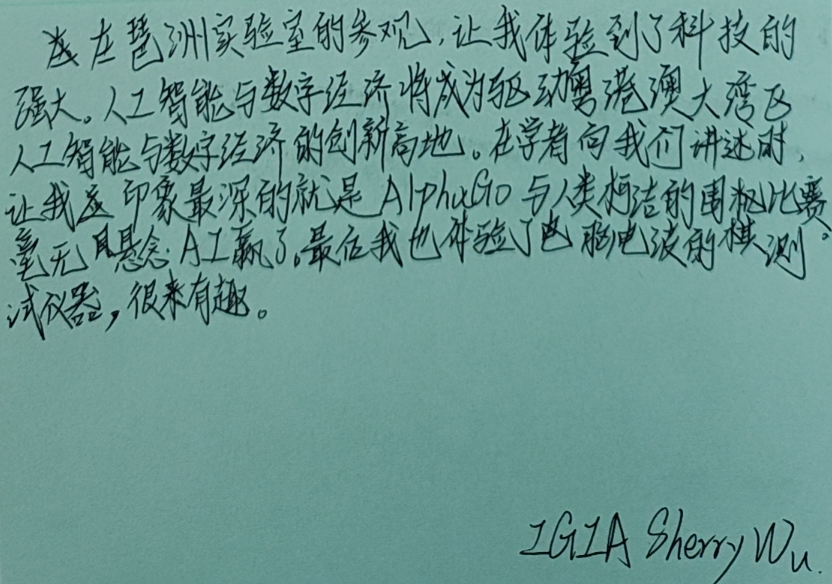 在琶洲实验室的参观，让我体验到了科技的
强大。人工智能与数字经济将成为驱动粤港澳大湾区
人工智能与数字经济的创新高地。在学者向我们讲述时，
让我印象最深的就是AlphaGo与人类柯洁的围棋比赛。
毫无悬念：AI赢了。最后我也体验了电脑电波的棋测
试仪器，很来有趣。
IGIA Sherry Wu.